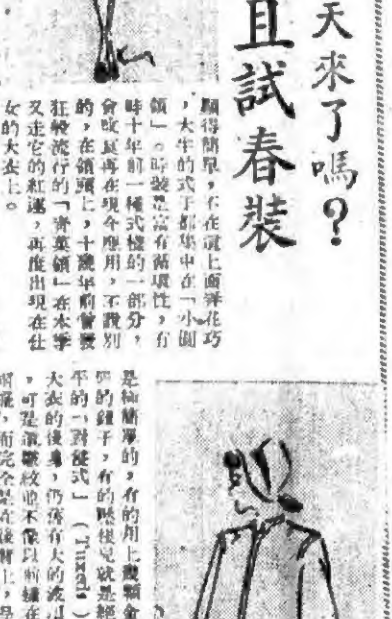 天來了嗎？
且試春裝
顯得簡單，不在這上面弄花巧
，大半的式子都集中在「小圓
領」。時裝是富有循環性，有
時十年前一種式樣的一部分，
會啟夏再在現今應用，不說別
的，在領頭上，十幾年前曾發
狂般流行的「青英領」在本季
又走它的紅運，再度出現在仕
女的大衣上。
是極簡單的，有的用上幾顆
的鈕子，有的
平的「對襟式」（Tuxedo）
大衣的後身，仍舊有大的波
，可是這皺紋並不像以前樣在
而完全是在後背上，